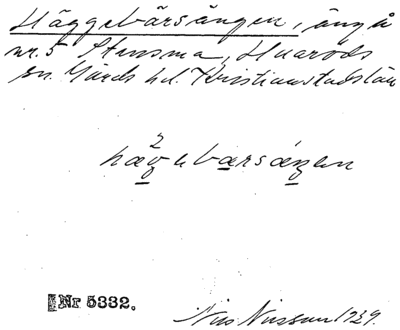 Häggebärsängen, äng å
nr. 5 Stensma, Huaröds
sn. Gärds hd. Kristianstads län
2
hägebarsäŋen
Nr 5332.
Nils Nilsson 1929.